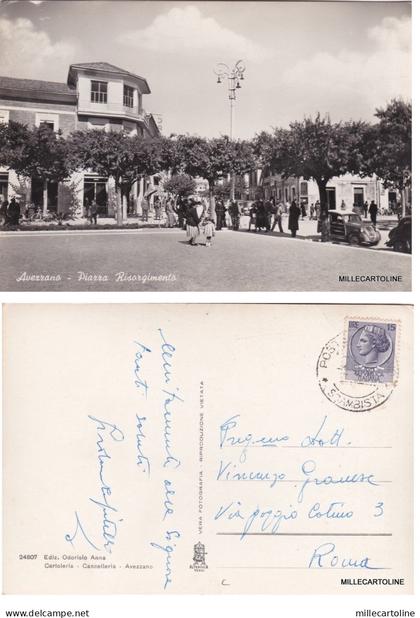 Avezzano - Piazza Risorgimento
MILLECARTOLINE
Unitamente alla Signora
tanti saluti
VERA FOTOGRAFIA - RIPRODUZIONE VIETATA
15
POST
STAMBISTA
Pregmo Dott.
Vincenzo Granese
Via poggio Catino 3
Roma
24807 Ediz. Odorisio Anna
Cartoleria - Cancelleria - Avezzano
MILLECARTOLINE
www.millecartoline.com